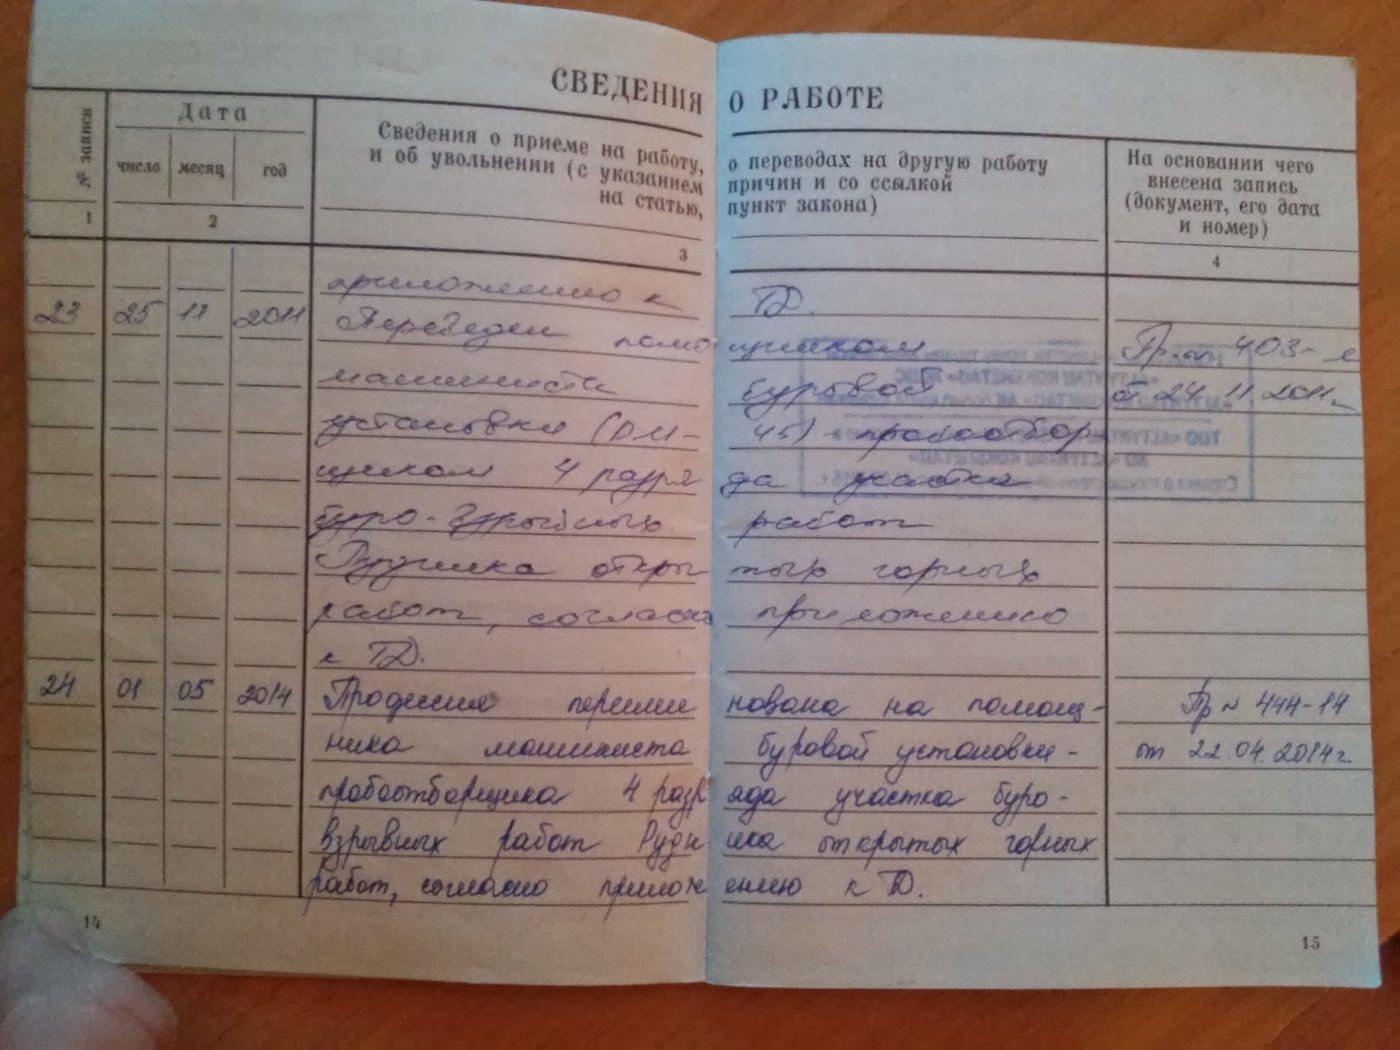 СВЕДЕНИЯ О РАБОТЕ
№ записи
Дата
число месяц год
Сведения о приеме на работу, о переводах на другую работу
и об увольнении (с указанием причин и со ссылкой
на статью, пункт закона)
На основании чего
внесена запись
(документ, его дата
и номер)
1 2 3 4
приложению к ТД.
23 25 11 2011 Переведен помощником Пр. № 403-л
машиниста буровой от 24.11.2011г.
установки (DM-45) - пробоотбор-
щиком 4 разряда участка
буро-взрывных работ
Рудника открытых горных
работ, согласно приложению
к ТД.
24 01 05 2014 Професия переименована на помощ- Пр № 444-14
ника машиниста буровой установки- от 22.04.2014г
пробоотборщика 4 разряда участка буро-
взрывных работ Рудника открытых горных
работ, согласно приложению к ТД.
14
15